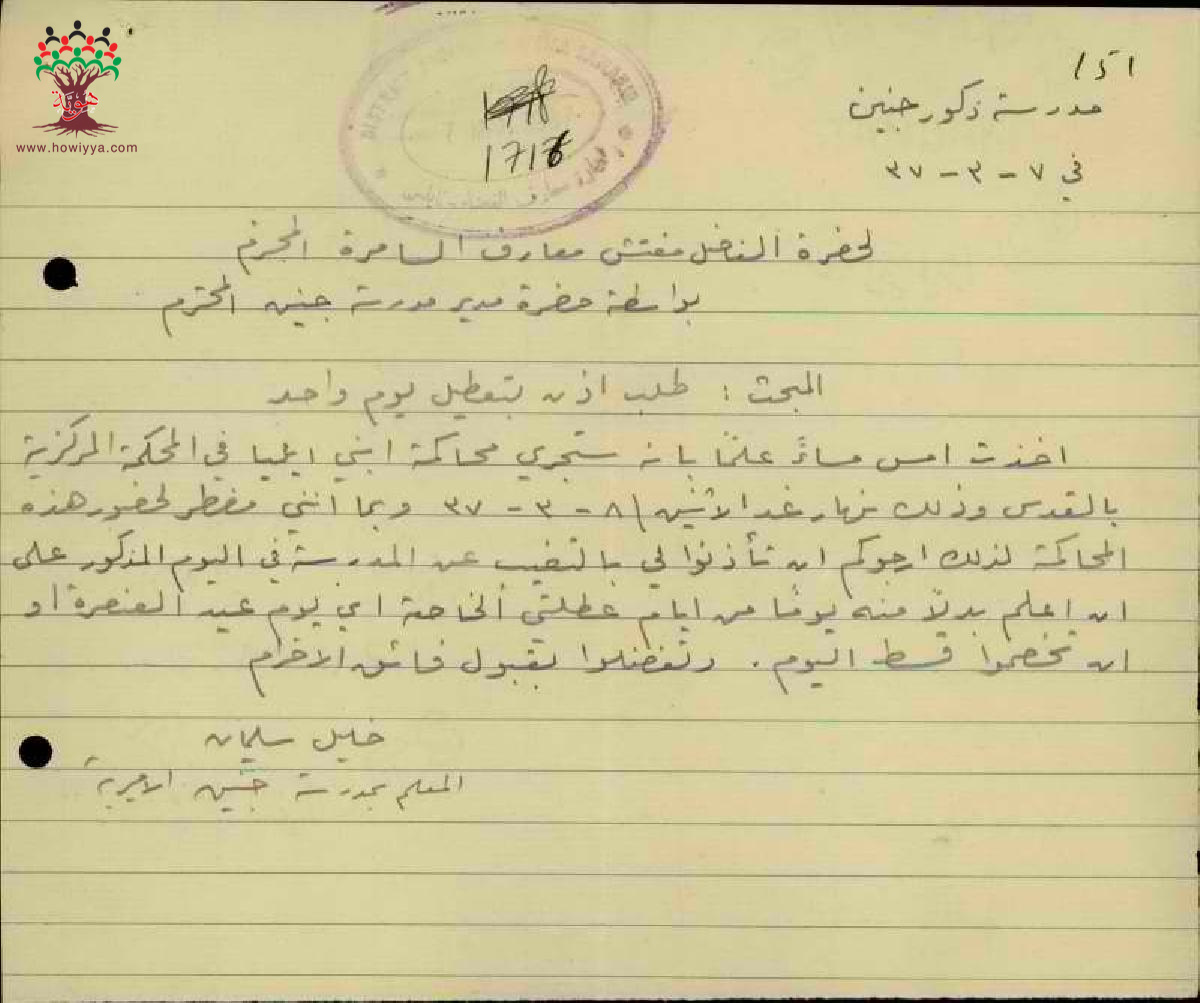 هوية
www.howiyya.com
1718
1716
مدرسة ذكور جنين
في ٧ - ٣ - ٣٧
لحضرة الفاضل مفتش معارف السامرة المحترم
بواسطة حضرة مدير مدرسة جنين المحترم
المبحث : طلب اذن بتعطيل يوم واحد
اخذت امس مساءً علمًا بانه ستجري محاكمة ابني ايليا في المحكمة المركزية
بالقدس وذلك نهار غد الاثنين ٨ - ٣ - ٣٧ وبما انني مضطر لحضور هذه
المحاكمة لذلك ارجوكم ان تأذنوا لي بالتغيب عن المدرسة في اليوم المذكور على
ان اعلم بدلاً منه يومًا من ايام عطلتي الخاصة اي يوم عيد العنصرة او
ان تخصموا قسط اليوم . وتفضلوا بقبول فائق الاحترام
خليل سليمان
المعلم بمدرسة جنين الاميرية